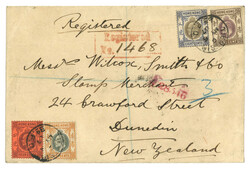 Registered
Registered
No. 1468
Messrs Wilcox, Smith & Co
Stamp Merchants
24 Crawford Street
Dunedin
New Zealand
3